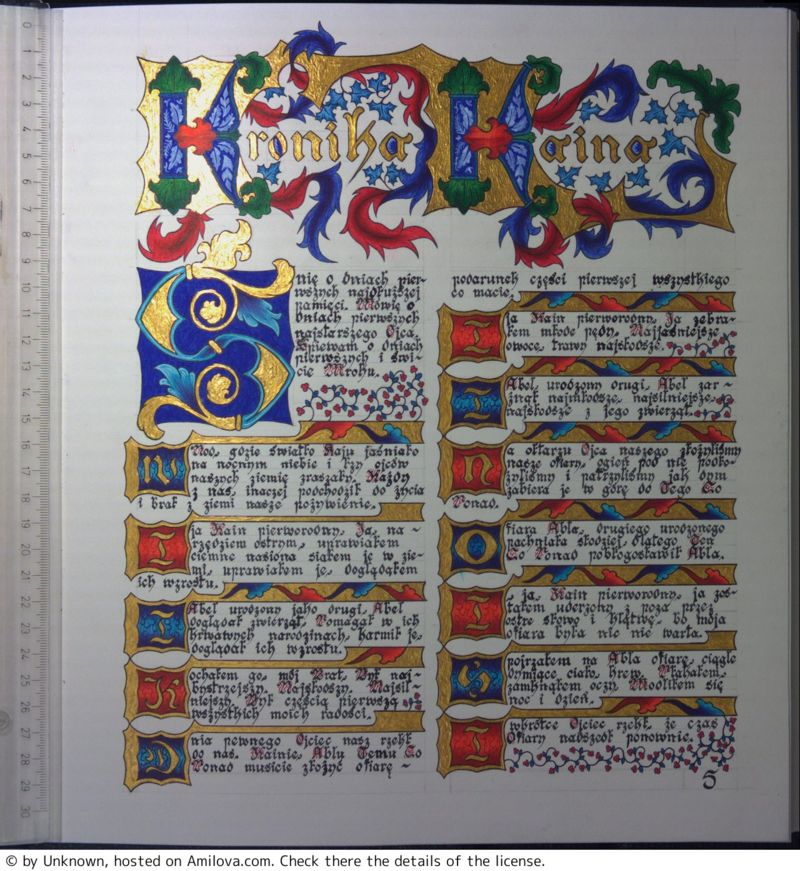 Kronika Kaina
Śnię o dniach pier-
wszych najdłuższej
pamięci. Mówię o
dniach pierwszych
najstarszego Ojca.
Śpiewam o dniach
pierwszych i świ-
cie Mroku.
W Nod, gdzie światło Raju jaśniało
na nocnym niebie i łzy ojców
naszych ziemię zraszały. Każdy
z nas, inaczej podchodził do życia
i brał z ziemi nasze pożywienie.
I ja Kain pierworodny. Ja, na-
rzędziem ostrym, uprawiałem
ciemne nasiona siałem je w zie-
mi, uprawiałem je, doglądałem
ich wzrostu.
I Abel urodzony jako drugi, Abel
doglądał zwierząt. Pomagał w ich
krwawych narodzinach, karmił je,
doglądał ich wzrostu.
Kochałem go, mój Brat. Był naj-
bystrzejszy. Najsłodszy. Najsil-
niejszy. Był częścią pierwszą
wszystkich moich radości.
Dnia pewnego Ojciec nasz rzekł
do nas. Kainie, Ablu Temu Co
Ponad musicie złożyć ofiarę -
podarunek części pierwszej wszystkiego
co macie.
I ja Kain pierworodny. Ja zebra-
łem młode pędy. Najjaśniejsze
owoce, trawy najsłodsze.
I Abel urodzony drugi, Abel zar-
żnął najmłodsze, najsilniejsze,
najsłodsze z jego zwierząt.
Na ołtarzu Ojca naszego złożyliśmy
nasze ofiary, ogień pod nie podło-
żyliśmy i patrzyliśmy jak dym
zabiera je w górę do Tego Co
Ponad.
Ofiara Abla, drugiego urodzonego
pachniała słodziej, dlatego Ten
Co Ponad pobłogosławił Abla.
I ja, Kain pierworodny, ja zos-
tałem uderzony z poza przez
ostre słowo i klątwę, bo moja
ofiara była nic nie warta.
Spojrzałem na Abla ofiarę, ciągle
dymiące ciało, krew. Płakałem,
zamknąłem oczy. Modliłem się
noc i dzień.
I wkrótce Ojciec rzekł, że czas
Ofiary nadszedł ponownie.
5
© by Unknown, hosted on Amilova.com. Check there the details of the license.